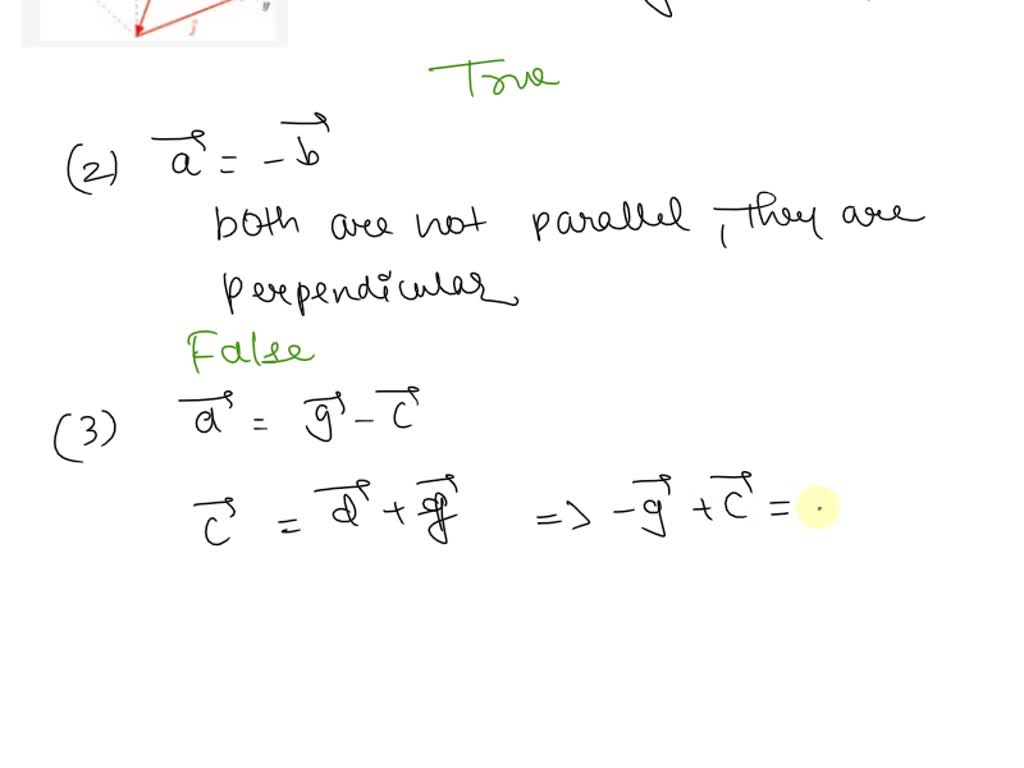 j
True
(2) \vec{a} = -\vec{b}
both are not parallel, They are
perpendicular
False
(3) \vec{d} = \vec{g} - \vec{c}
\vec{c} = \vec{d} + \vec{g} => -\vec{g} + \vec{c} =